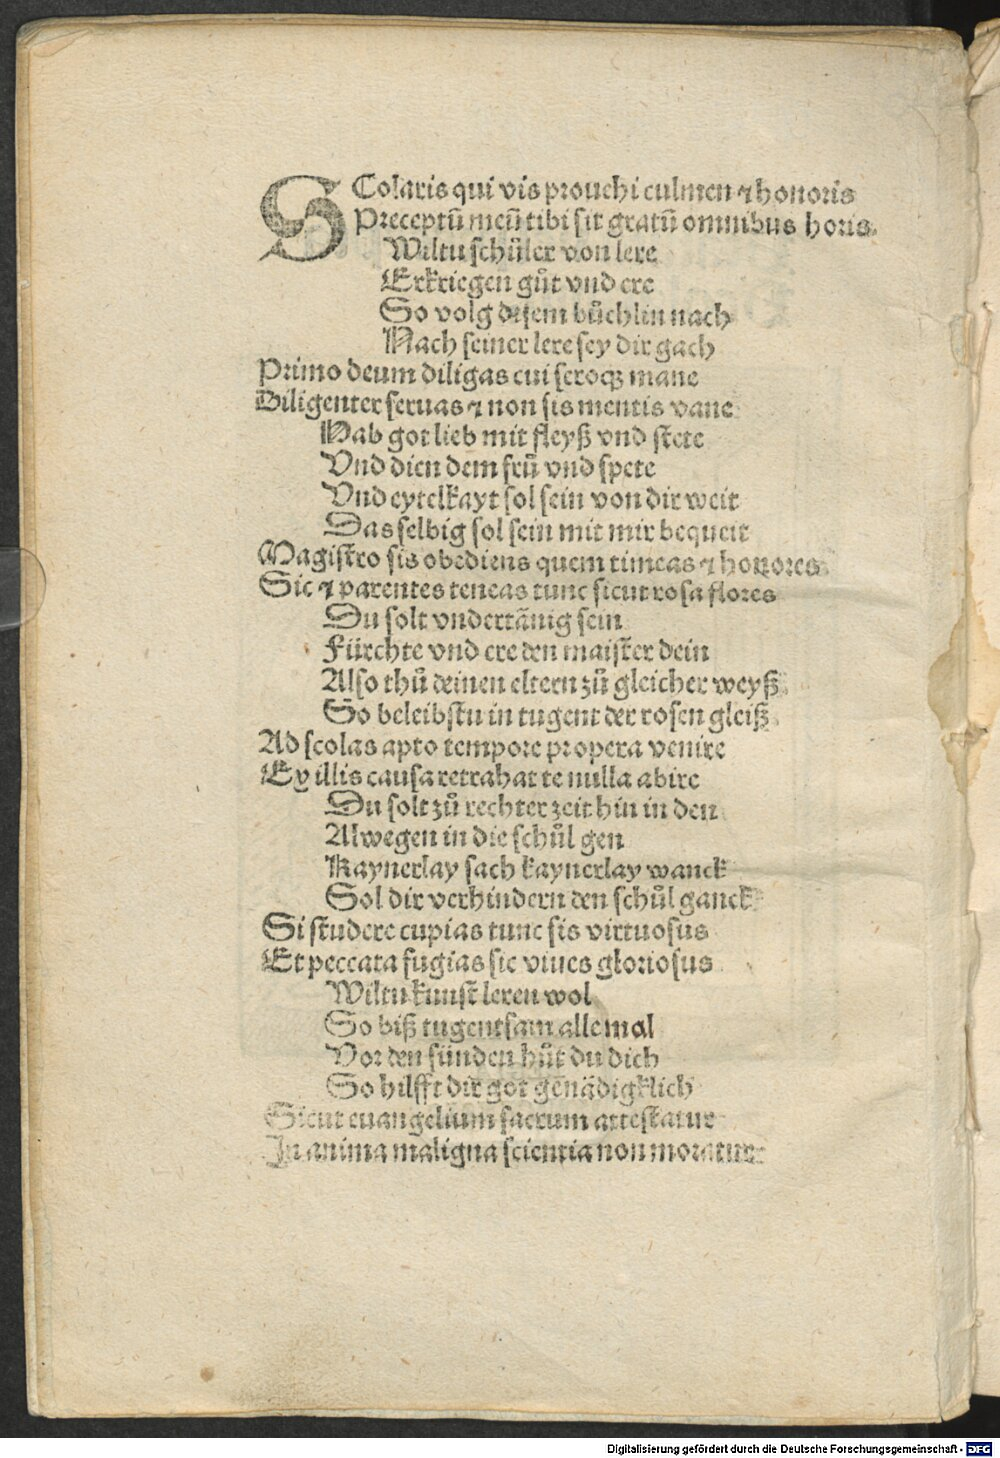 SColaris qui vis prouehi culmen ⁊ honoris
Preceptū meū tibi sit gratū omnibus horis.
Wiltu schůler von lere
Erkriegen gůt vnd ere
So volg disem bůchlin nach
Nach seiner lere sey dir gach
Primo deum diligas cui seroqꝫ mane
Diligenter seruas ⁊ non sis mentis vane
Hab got lieb mit fleyß vnd stete
Vnd dien dem frů vnd spete
Vnd eytelkayt sol sein von dir weit
Das selbig sol sein mit mir bequeit
Magistro sis obediens quem timeas ⁊ honores
Sic ⁊ parentes teneas tunc sicut rosa flores
Du solt vndertänig sein
Fürchte vnd ere den maister dein
Also thů deinen eltern zů gleicher weyß
So beleibstu in tugent der rosen gleiß
Ad scolas apto tempore propera venire
Ey illis causa retrahat te nulla abire
Du solt zů rechter zeit hin in den
Alwegen in die schůl gen
Kaynerlay sach kaynerlay wanck
Sol dir verhindern den schůl ganck
Si studere cupias tunc sis virtuosus
Et peccata fugias sic viues gloriosus
Wiltu kunst leren wol
So biß tugentsam alle mal
Vor den sünden hůt du dich
So hilfft dir got genädigklich
Sicut euangelium sacrum attestatur
In anima maligna scientia non moratur
Digitalisierung gefördert durch die Deutsche Forschungsgemeinschaft - DFG